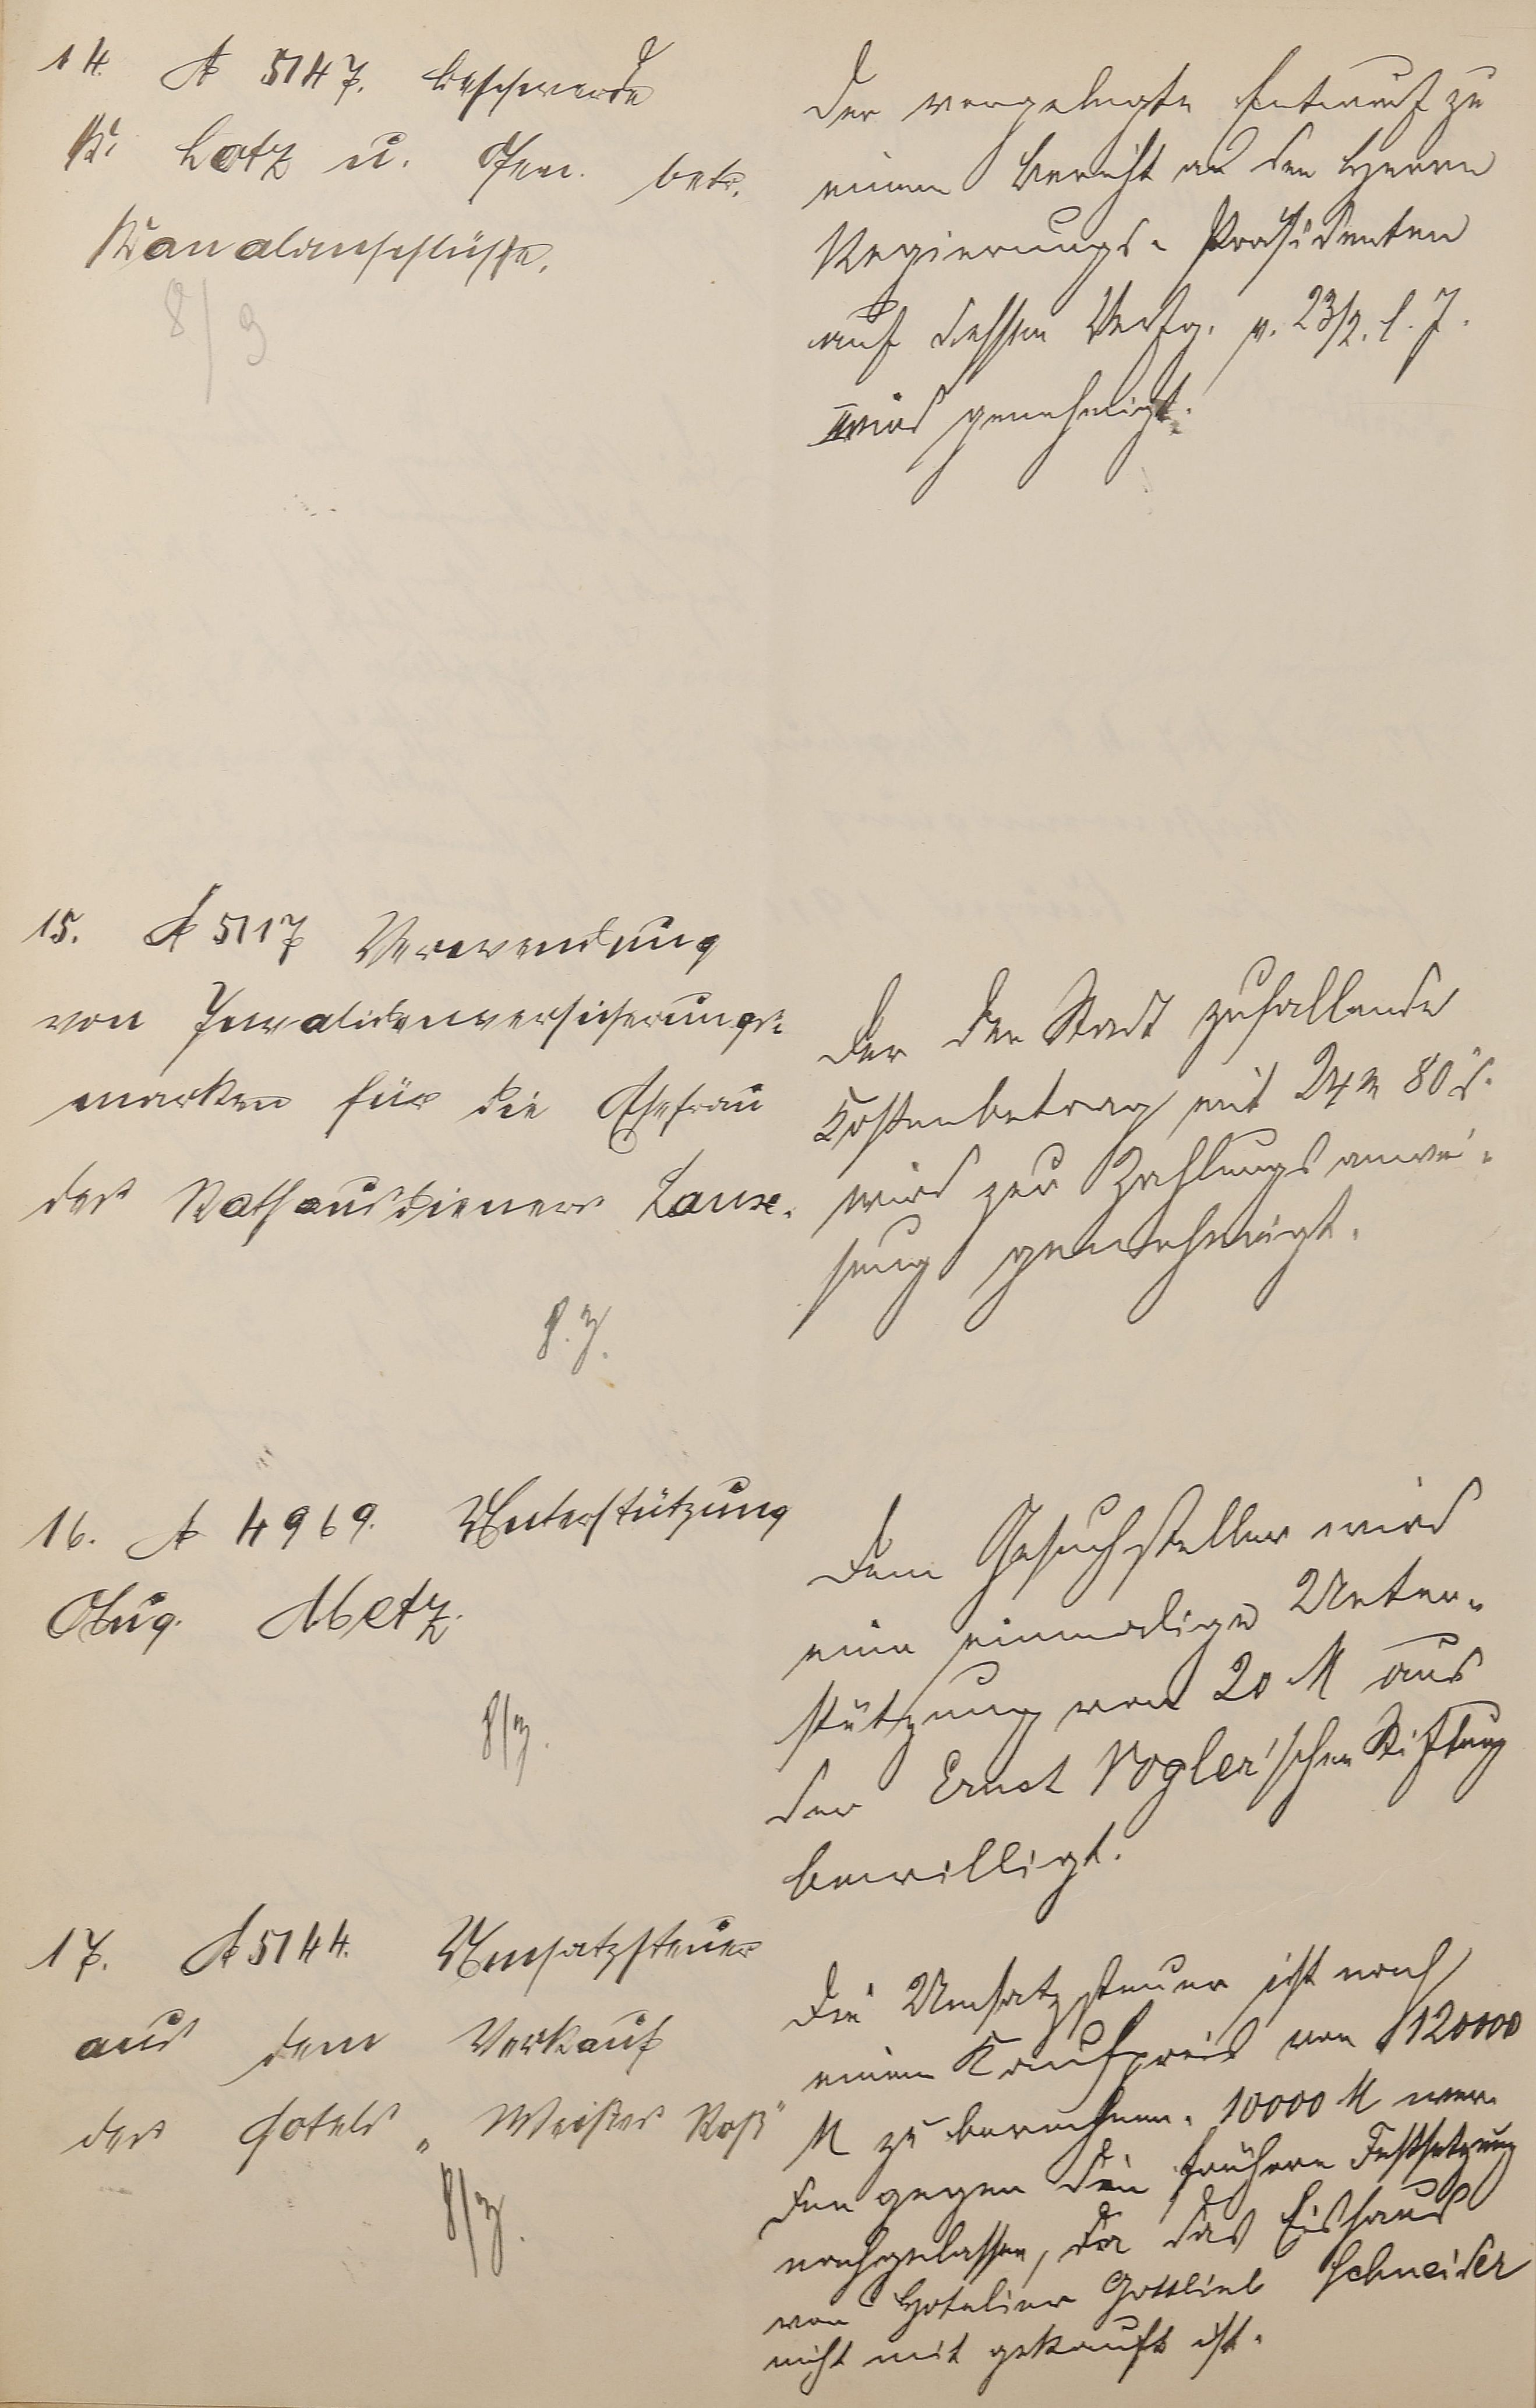 14. A 5147. Beschwerde
K. Lotz u. Gen. betr.
Kanalanschlüsse.
8/3
Der vorgelegte Entwurf zu
einem Bericht an den Herrn
Regierungs-Präsidenten
auf dessen Verfg. v. 23/2. l. J.
wird genehmigt.
15. A 5117 Verwendung
von Invalidenversicherungs-
marken für die Ehefrau
des Rathausdieners Laux.
8.3.
Der der Stadt zufallende
Kostenbetrag mit 24 M 80 d.
wird zur Zahlungsanwei-
sung genehmigt.
16. A 4969. Unterstützung
Aug. Metz.
8/3.
Dem Gesuchsteller wird
eine einmalige Unter-
stützung von 20 M aus
der Ernst Vogler'schen Stiftung
bewilligt.
17. A 5144. Umsatzsteuer
aus dem Verkauf
des Hotels „Weißes Roß"
8/3.
Die Umsatzsteuer ist nach
einem Kaufpreis von 120000
M zu berechnen. 10000 M wer-
den gegen die frühere Festsetzung
nachgelassen, da das Eishaus
von Hotelier Gottlieb Schneider
nicht mit gekauft ist.